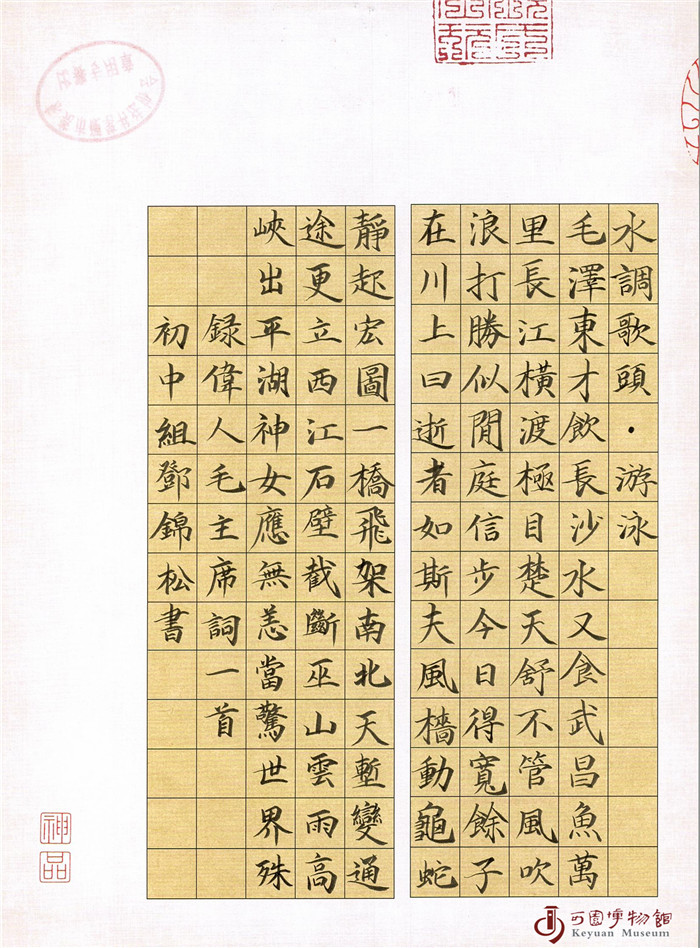 水調歌頭·游泳
毛澤東才飲長沙水又食武昌魚萬
里長江橫渡極目楚天舒不管風吹
浪打勝似閒庭信步今日得寬餘子
在川上曰逝者如斯夫風檣動龜蛇
靜起宏圖一橋飛架南北天塹變通
途更立西江石壁截斷巫山雲雨高
峽出平湖神女應無恙當驚世界殊
録偉人毛主席詞一首
初中組鄧錦松書
神品
可園博物館
Keyuan Museum